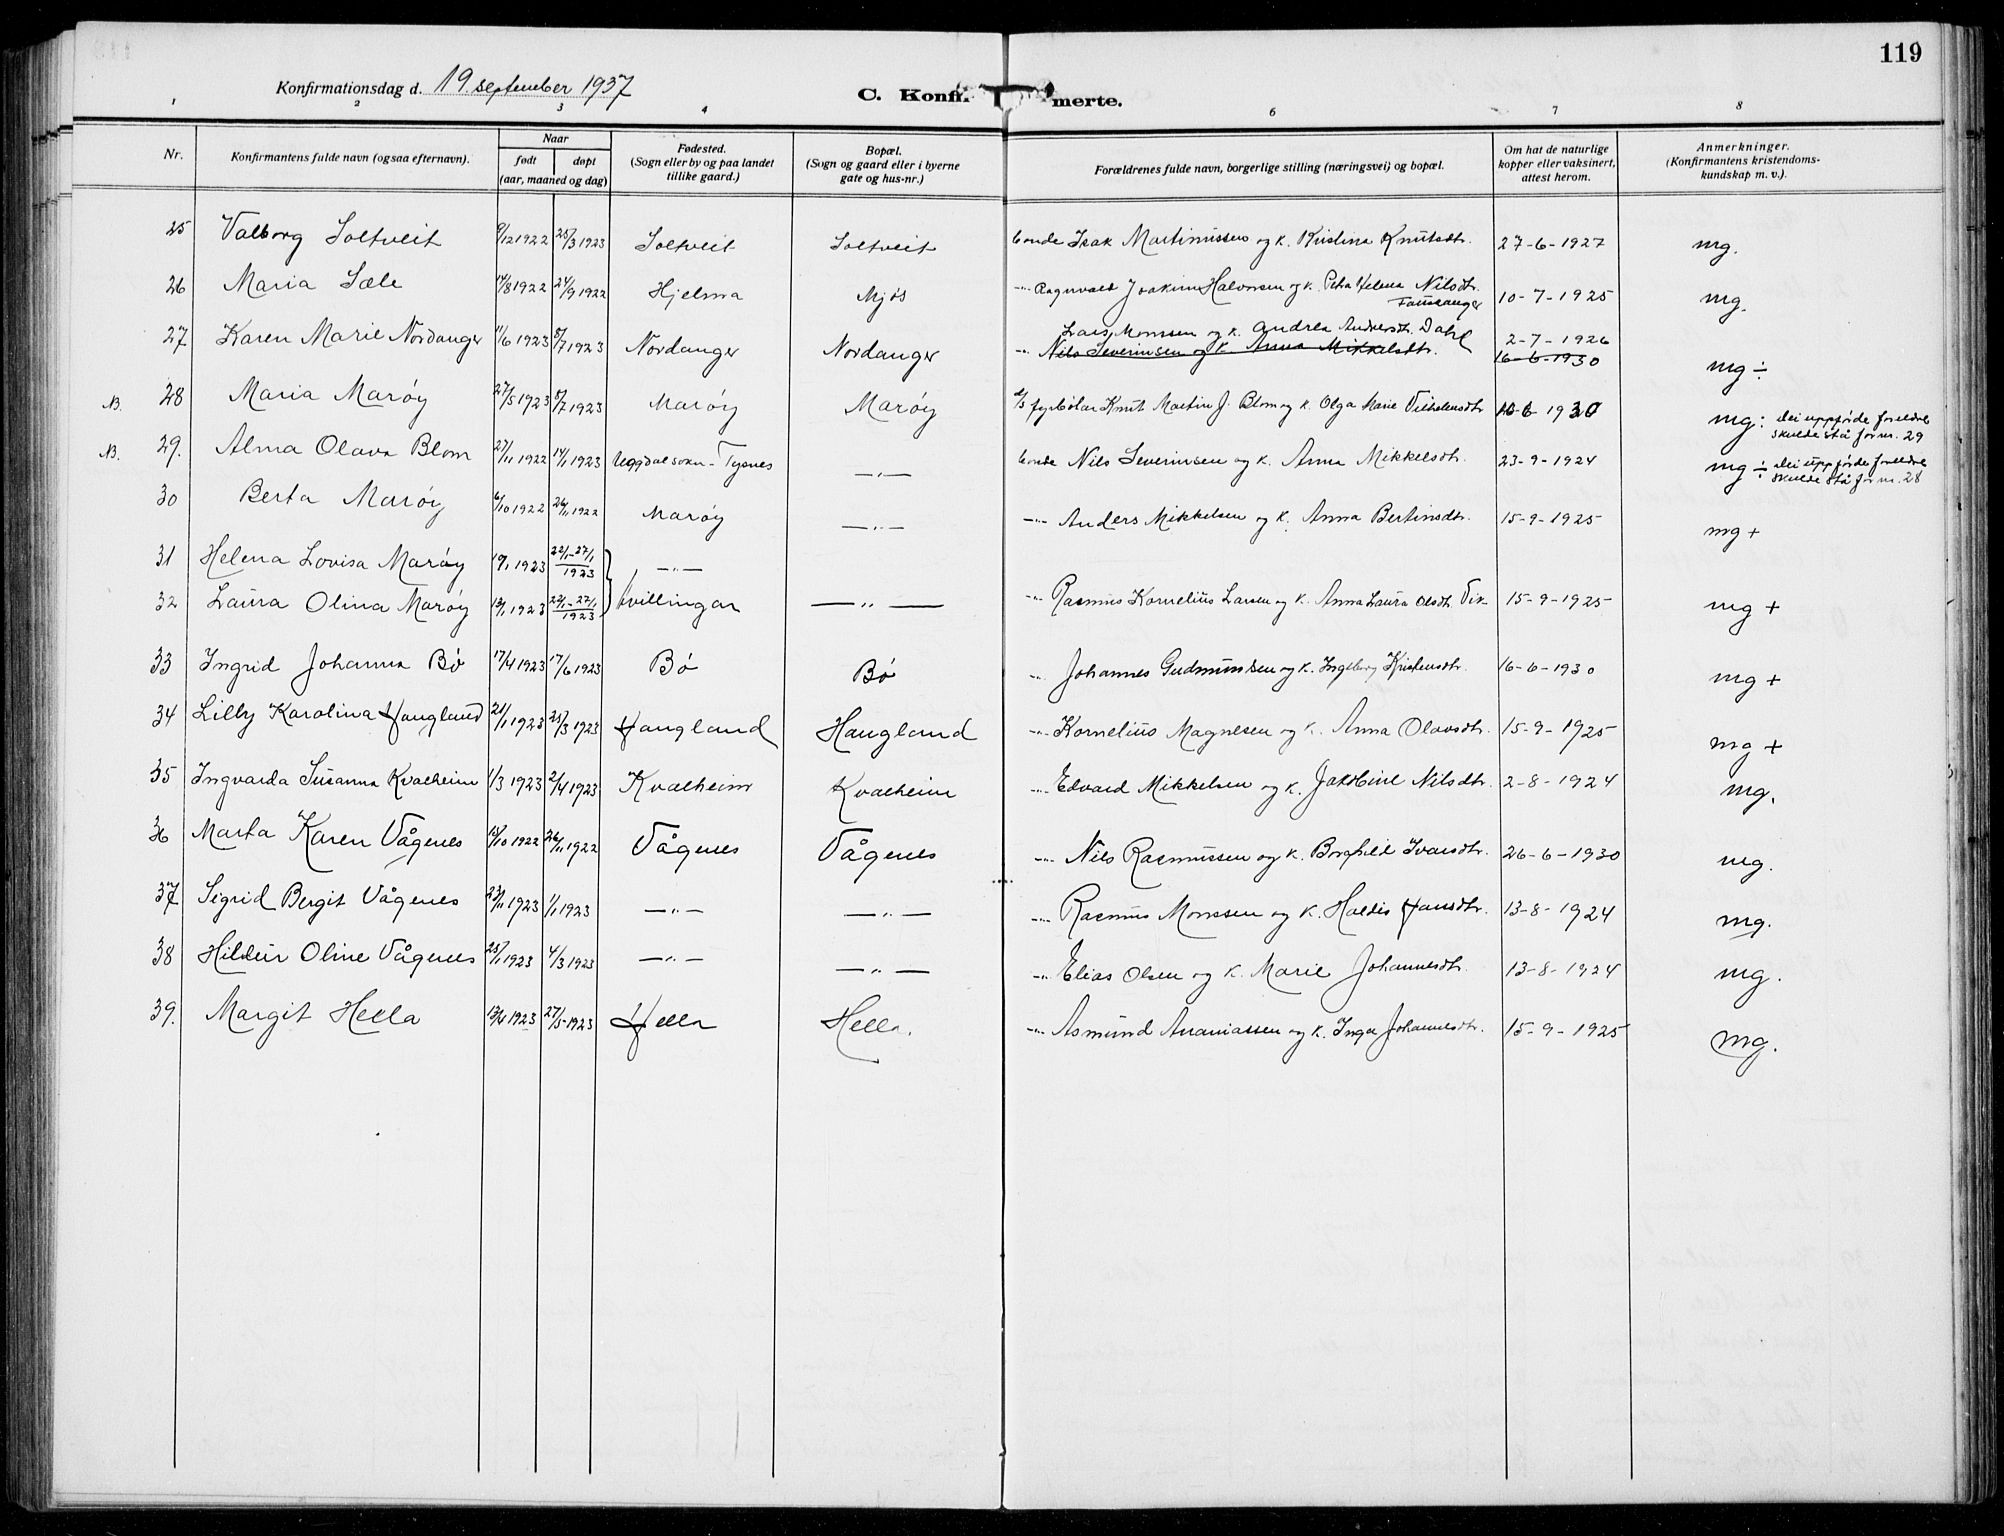 119
Konfirmationsdag d. 19. september 1937
C. Konfirmerte.
1 2 3 4 5 6 7 8
Nr. | Konfirmantens fulde navn (ogsaa efternavn). | Naar født døpt (aar, maaned og dag) | Fødested. (Sogn eller by og paa landet tillike gaard.) | Bopæl. (Sogn og gaard eller i byerne gate og hus-nr.) | Forældrenes fulde navn, borgerlige stilling (næringsvei) og bopæl. | Om hat de naturlige kopper eller vaksinert, attest herom. | Anmerkninger. (Konfirmantens kristendomskundskap m. v.).
25 Valborg Soltveit 9/12 1922 25/3 1923 Soltveit Soltveit bonde Isak Martinussen og k. Kristina Knutsdtr. 27-6-1927 mg.
26 Maria Sæle 14/8 1922 24/9 1922 Hjelma Mjøs -"- Ragnvald Joakim Halvorsen og k. Petra Helena Nilsdtr. Fammanger 10-7-1925 mg.
27 Karen Marie Nordanger 11/6 1923 8/7 1923 Nordanger Nordanger Lars Monssen og k. Andrea Andersdtr. Dahl 2-7-1926
-"- Nils Severinsen og k. Anna Mikkelsdtr. 16-6-1930 mg ÷
N.B. 28 Maria Marøy 27/5 1923 8/7 1923 Marøy Marøy fyrbøtar Knut Martin J. Blom og k. Olga Marie Vilhelmsdtr 16-6 1930 mg: Dei uppførde foreldre skulde stå for nr. 29
N.B. 29. Alma Olava Blom 27/11 1922 14/1 1923 Uggdalsokn - Tysnes -"- bonde Nils Severinsen og k. Anna Mikkelsdtr. 23-9-1924 mg ÷ Dei uppførde foreldre skulde stå for nr. 28
30 Berta Marøy 6/10 1922 26/11 1922 Marøy -"- -"- Anders Mikkelsen og k. Anna Bertinsdtr. 15-9-1925 mg +
31 Helena Lovisa Marøy 19/1 1923 22/1-27/1 1923 -"-
32 Laura Olina Marøy 19/1 1923 22/1-27/1 1923 } tvillingar -"- -"- Rasmus Kornelius Larsen og k. Anna Laura Olsdtr. Vik 15-9-1925 mg +
33 Ingrid Johanna Bø 17/4 1923 17/6 1923 Bø Bø -"- Johannes Gudmundsen og k. Ingeborg Kristensdtr. 16-6-1930 mg +
34 Lilly Karolina Haugland 21/1 1923 25/3 1923 Haugland Haugland -"- Kornelius Magnesen og k. Anna Olavsdtr. 15-9-1925 mg +
35 Ingvarda Susanna Kvalheim 1/3 1923 2/4 1923 Kvalheim Kvalheim -"- Edvard Mikkelsen og k. Jakobine Nilsdtr. 2-8-1924 mg.
36 Marta Karen Vågenes 14/10 1922 26/11 1922 Vågenes Vågenes -"- Nils Rasmussen og k. Borghild Ivarsdtr. 26-6-1930 mg.
37 Sigrid Bergit Vågenes 23/11 1923 1/1 1923 -"- -"- -"- Rasmus Monssen og k. Haldis Hansdtr. 13-8-1924 mg.
38 Hildur Oline Vågenes 25/1 1923 4/3 1923 -"- -"- -"- Elias Olsen og k. Marie Johannesdtr. 13-8-1924 mg.
39. Margit Hella 13/4 1923 27/5-1923 Hella Hella. -"- Asmund Ananiassen og k. Inga Johannesdtr. 15-9-1925 mg.